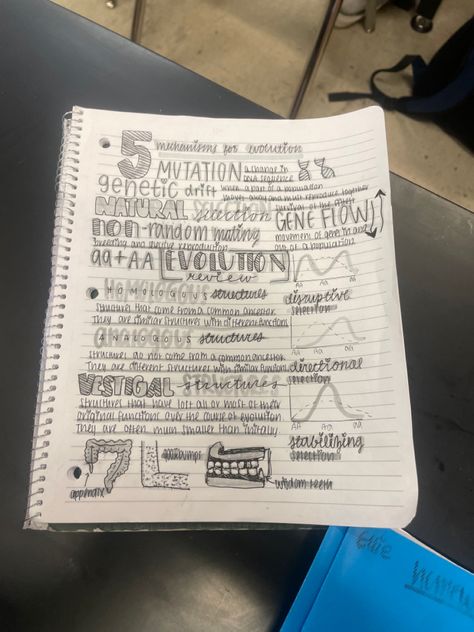 5 mechanisms for evolution
MUTATION a change in
DNA sequence
genetic drift when a part of a population
moves away and must reproduce together
survival of the fittest
NATURAL selection
GENE FLOW
non-random mating
movement of genes in and
out of a population
breeding and selective reproduction
aa + AA EVOLUTION
review
AA Aa aa
HOMOLOGOUS structures
disruptive
selection
structures that come from a common ancestor
They are similar structures with different functions
ANALOGOUS structures
AA Aa aa
structures do not come from a common ancestor
They are different structures with similar functions
directional
selection
VESTIGIAL structures
structures that have lost all or most of their
original functions over the course of evolution
They are often much smaller than initially
AA Aa aa
stabilizing
selection
appendix
goosebumps
wisdom teeth
Ellie